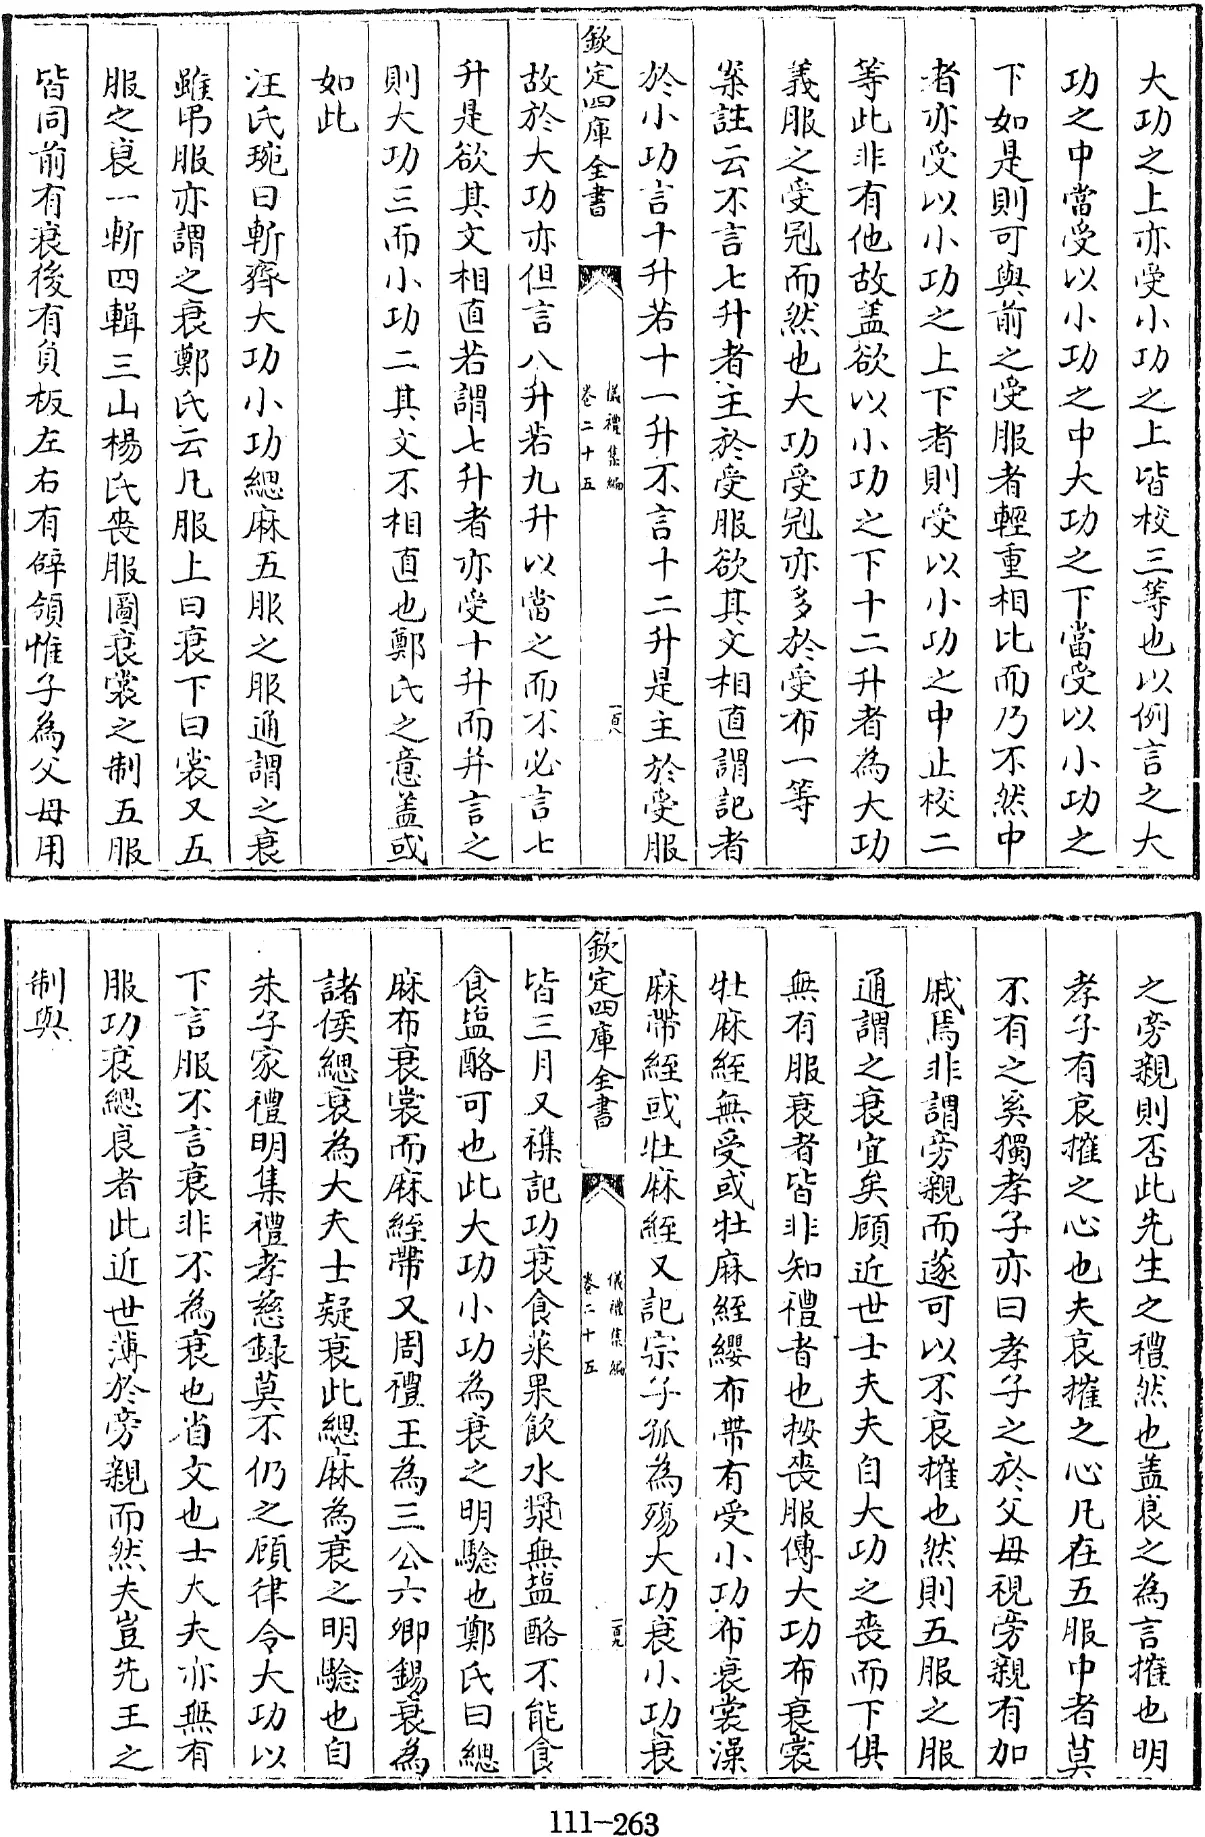 大功之上亦受小功之上皆校三等也以例言之大
功之中當受以小功之中大功之下當受以小功之
下如是則可與前之受服者輕重相比而乃不然中
者亦受以小功之上下者則受以小功之中止校二
等此非有他故蓋欲以小功之下十二升者為大功
義服之受冠而然也大功受冠亦多於受布一等
案註云不言七升者主於受服欲其文相直謂記者
於小功言十升若十一升不言十二升是主於受服
欽定四庫全書
儀禮集編
卷二十五
一百八
故於大功亦但言八升若九升以當之而不必言七
升是欲其文相直若謂七升者亦受十升而并言之
則大功三而小功二其文不相直也鄭氏之意蓋或
如此
汪氏琬曰斬齊大功小功緦麻五服之服通謂之衰
雖弔服亦謂之衰鄭氏云凡服上曰衰下曰裳又五
服之衰一斬四緝三山楊氏喪服圖衰裳之制五服
皆同前有衰後有負板左右有辟領惟子為父母用
之旁親則否此先生之禮然也蓋衰之為言摧也明
孝子有哀摧之心也夫哀摧之心凡在五服中者莫
不有之奚獨孝子亦曰孝子之於父母視旁親有加
戚焉非謂旁親而遂可以不哀摧也然則五服之服
通謂之衰宜矣顧近世士大夫自大功之喪而下俱
無有服衰者皆非知禮者也按喪服傳大功布衰裳
牡麻絰無受或牡麻絰纓布帶有受小功布衰裳澡
麻帶絰或牡麻絰又記宗子孤為殤大功衰小功衰
欽定四庫全書
儀禮集編
卷二十五
一百九
皆三月又襍記功衰食菜果飲水漿無盬酪不能食
食盬酪可也此大功小功為衰之明驗也鄭氏曰緦
麻布衰裳而麻絰帶又周禮王為三公六卿錫衰為
諸侯緦衰為大夫士疑衰此緦麻為衰之明驗也自
朱子家禮明集禮孝慈録莫不仍之顧律令大功以
下言服不言衰非不為衰也省文也士大夫亦無有
服功衰緦衰者此近世薄於旁親而然夫豈先王之
制與
111-263